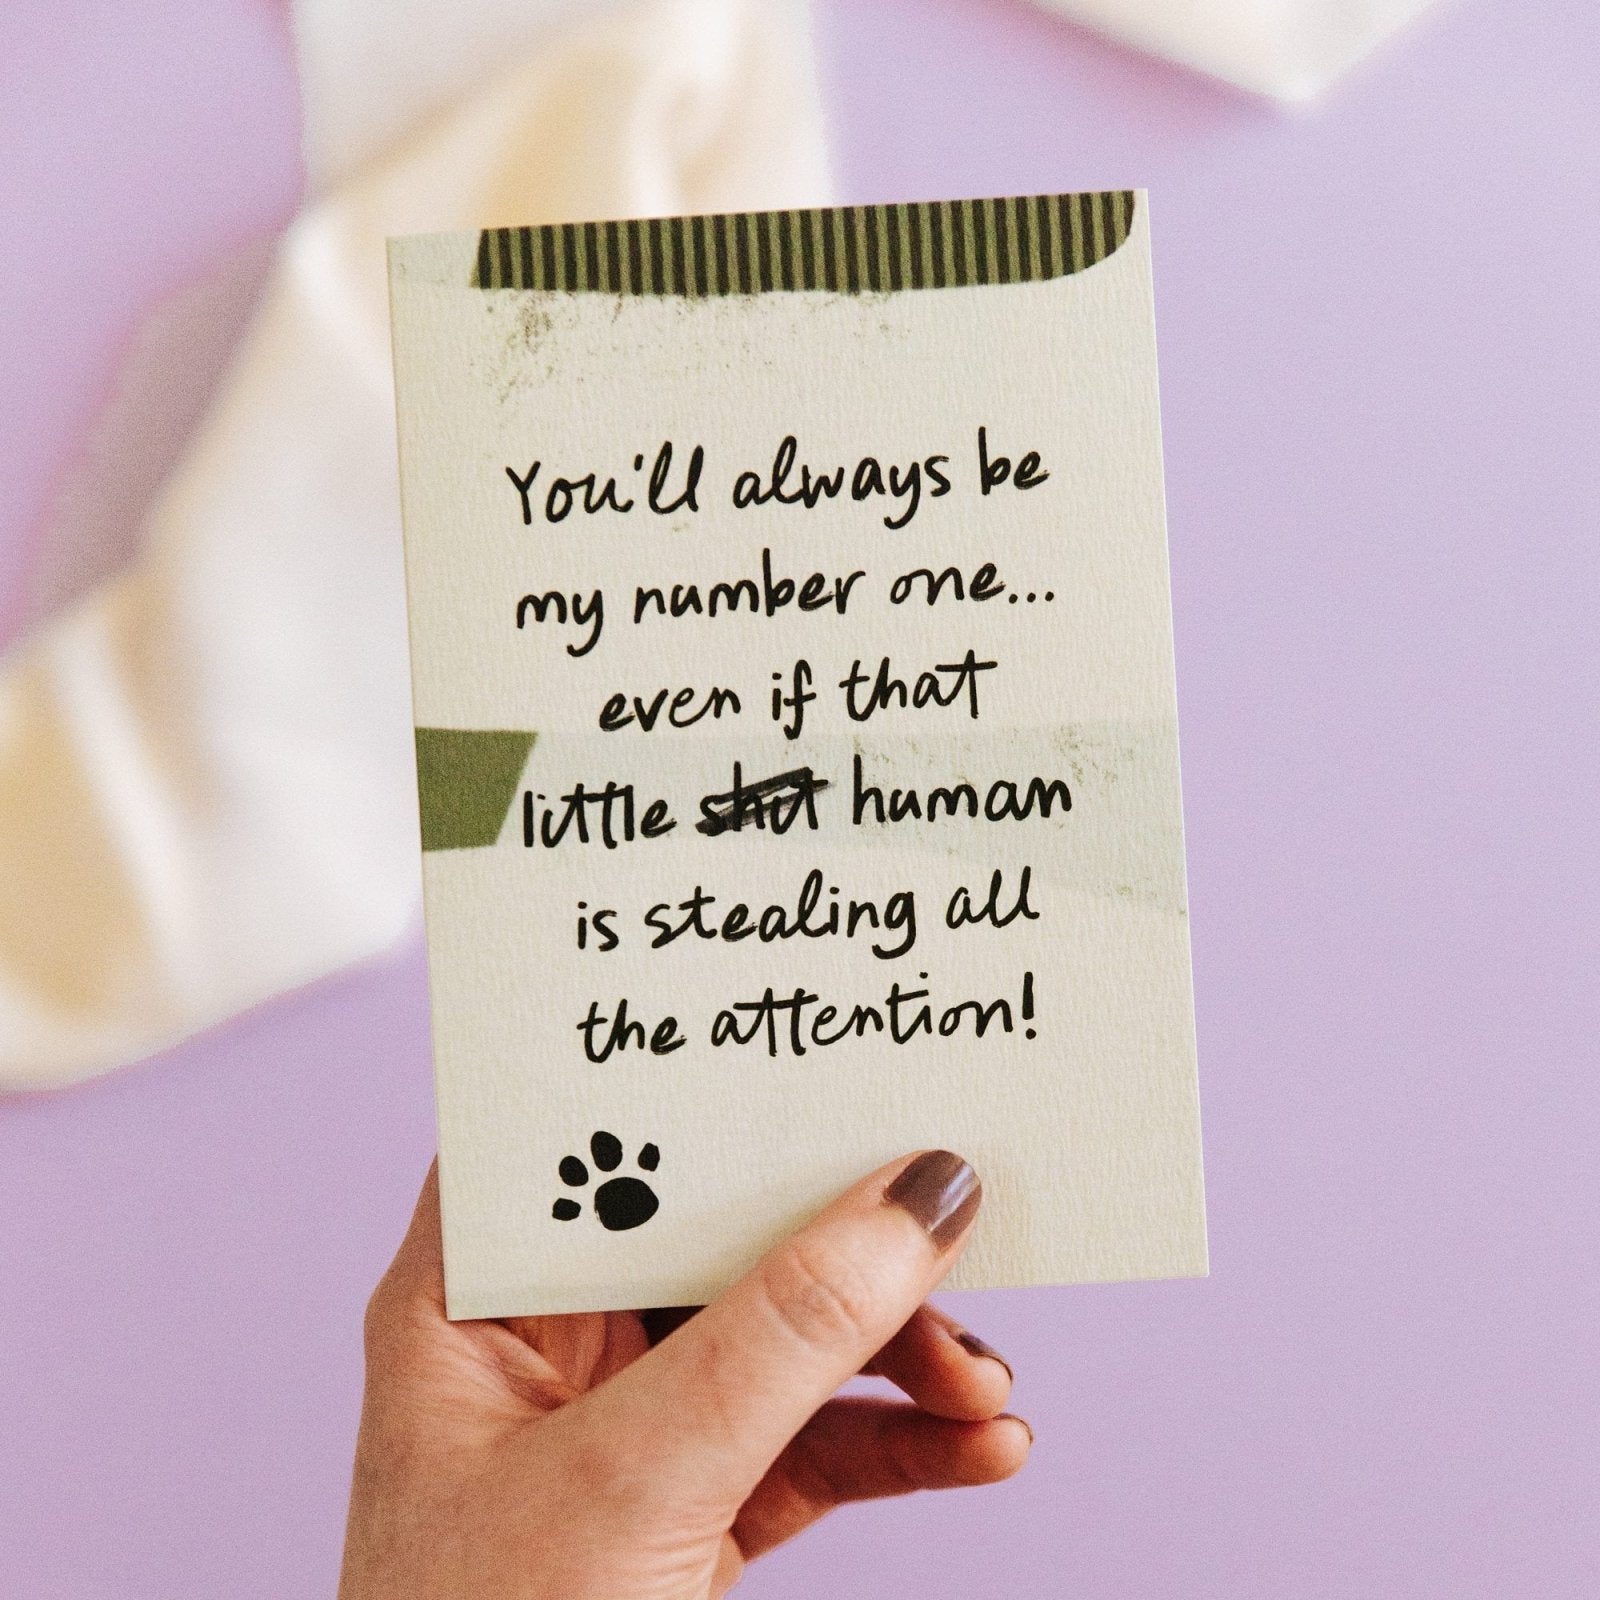 You'll always be
my number one...
even if that
little shit human
is stealing all
the attention!